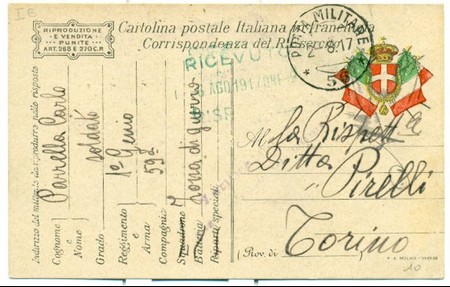 I E
RIPRODUZIONE
E VENDITA
PUNITE
ART. 268 E 270 C.P.
Cartolina postale Italiana in franchigia
Corrispondenza del R. Esercito
POSTA MILITARE
2.8.17
* 56 *
RICEVUTO
AGO 1917
RISP
Indirizzo del militare da riprodurre nella risposta
Cognome e Nome Parrella Carlo
Grado soldato
Reggimento e Arma 1° Genio
Compagnia 59a
Squadrone
Batteria zona di guerra
Riparti speciali
Alla Rispett
Ditta
" Pirelli
(Prov. di Torino
10